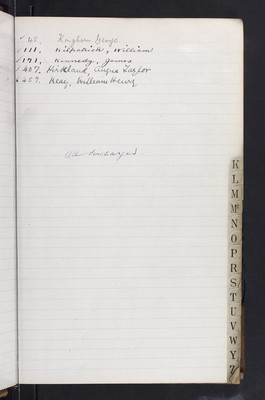 ✓ 45. Kinghorn George.
✓ 111, Kilpatrick, William
✓ 171, Kennedy, James
✓ 407. Kirkland, Angus Taylor
✓ 457. Keay, William Henry
All discharged
K
L
M
Mc
N
O
P
R
S
T
U
V
W
Y
Z